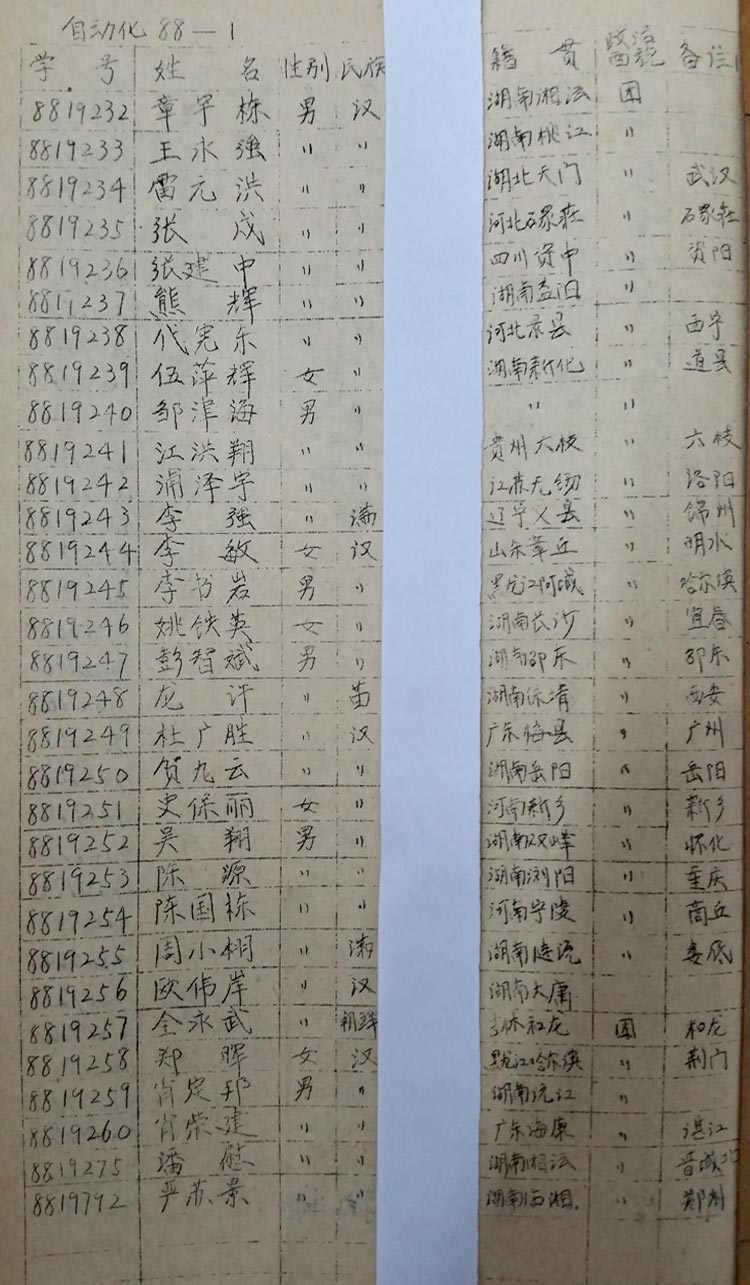 自动化88—1
学号 姓名 性别 民族 籍贯 政治面貌 备注
8819232 章宇栋 男 汉 湖南湘 团
8819233 王永强 〃 〃 湖南桃江 〃
8819234 雷元洪 〃 〃 湖北天门 〃 武汉
8819235 张成 〃 〃 河北石家庄 〃 石家庄
8819236 张建中 〃 〃 四川资中 〃 资阳
8819237 熊辉 〃 〃 湖南益阳 〃
8819238 代宪东 〃 〃 河北景县 〃 西宁
8819239 伍萍辉 女 〃 湖南新化 〃 道县
8819240 邹泽海 男 〃 〃 〃
8819241 江洪翔 〃 〃 贵州六枝 〃 六枝
8819242 浦泽宇 〃 〃 江苏无锡 〃 洛阳
8819243 李强 〃 满 辽宁义县 〃 锦州
8819244 李敏 女 汉 山东章丘 〃 明水
8819245 李书岩 男 〃 黑龙江阿城 〃 哈尔滨
8819246 姚铁英 女 〃 湖南长沙 〃 宜春
8819247 彭智斌 男 〃 湖南邵东 〃 邵东
8819248 龙许 〃 苗 湖南 〃 西安
8819249 杜广胜 〃 汉 广东梅县 〃 广州
8819250 贺九云 〃 〃 湖南岳阳 〃 岳阳
8819251 史保丽 女 〃 河南新乡 〃 新乡
8819252 吴翔 男 〃 湖南双峰 〃 怀化
8819253 陈源 〃 〃 湖南浏阳 〃 重庆
8819254 陈国栋 〃 〃 河南宁陵 〃 商丘
8819255 周小栩 〃 满 湖南涟源 〃 娄底
8819256 欧伟岸 〃 汉 湖南大庸
8819257 全永武 〃 朝鲜 吉林和龙 团 和龙
8819258 郑晖 女 汉 黑龙江哈尔滨 〃 荆门
8819259 肖定邦 男 〃 湖南沅江 〃
8819260 肖荣建 〃 〃 广东海康 〃 湛江
8819275 潘 〃 〃 湖南 〃 晋城北
8819792 严苏景 〃 〃 湖南临湘 〃 郑州